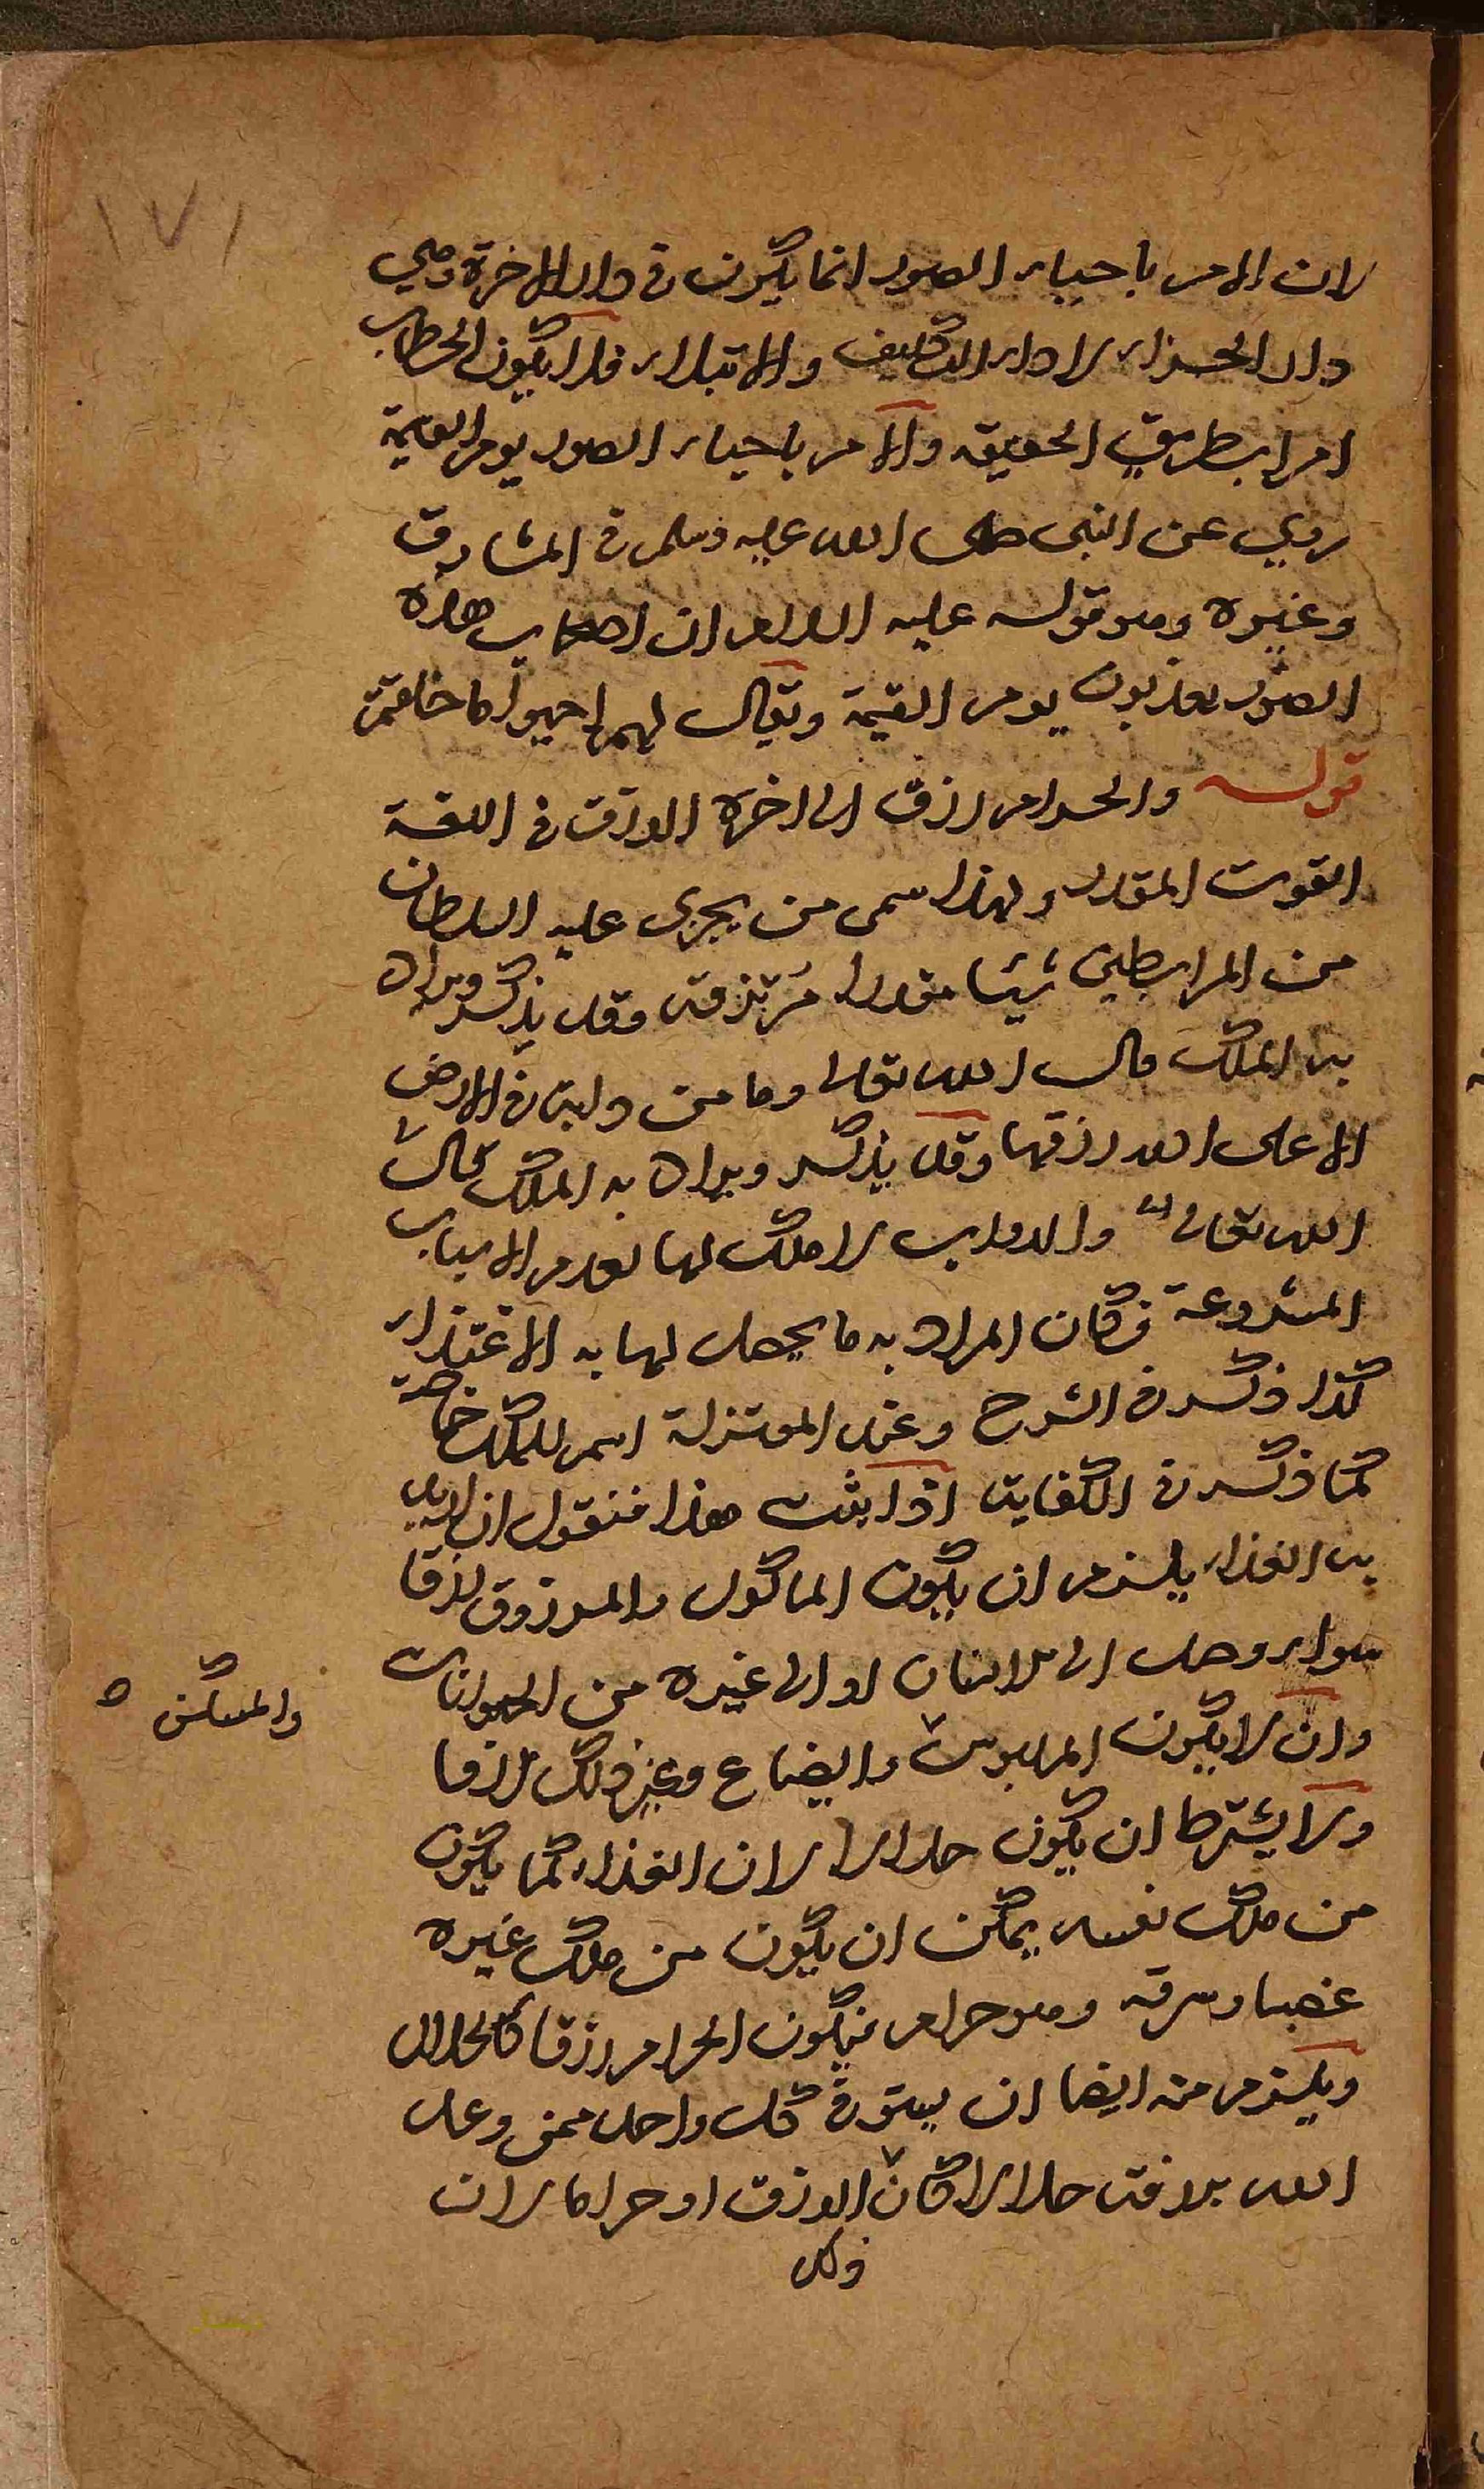 ١٧١
لان الامر باحياء الصور انما يكون في دار الاخرة وهي
دار الجزاء لا دار التكليف والابتلاء فلا يكون الخطاب
امرا بطريق الحقيقه والامر باحياء الصور يوم القيمة
روي عن النبى صلى الله عليه وسلم في المشارق
وغيره وهو قوله عليه السلام ان اصحاب هذه
الصور يعذبون يوم القيمة ويقال لهم احيوا ما خلقتم
قوله والحرام رزق الى اخره الرزق في اللغة
القوت المقدر ولهذا سمى من يجرى عليه السلطان
من المرابطين شيئا مقدرا مرتزقه وقد يذكر ويراد
به الملك قال الله تعالى وما من دابة في الارض
الا على الله رزقها وقد يذكر ويراد به الملك قال
الله تعالى والدواب لا ملك لها لعدم الاسباب
المشروعة فكان المراد به ما يحصل لها به الاغتذاء
كذا ذكر في الشرح وعند المعتزلة اسم للملك خاصة
كما ذكر في الكفاية اذا ثبت هذا فنقول ان اريد
به الغذاء يلزم ان يكون الماكول والمرزوق رزقا
سواء وصل الى الانسان او الى غيره من الحيوانات
وان لا يكون الملبوس والضياع وغير ذلك رزقا
والمسكن ٥
ولا يشترط ان يكون حلالا لان الغذاء كما يكون
من ملك نفسه يمكن ان يكون من ملك غيره
غصبا وسرقه وهو حرام فيكون الحرام رزقا كالحلال
ويلزم منه ايضا ان يستوفى كل واحد ممن وعد
الله برزقه حلالا كان الرزق او حراما لان
وكل